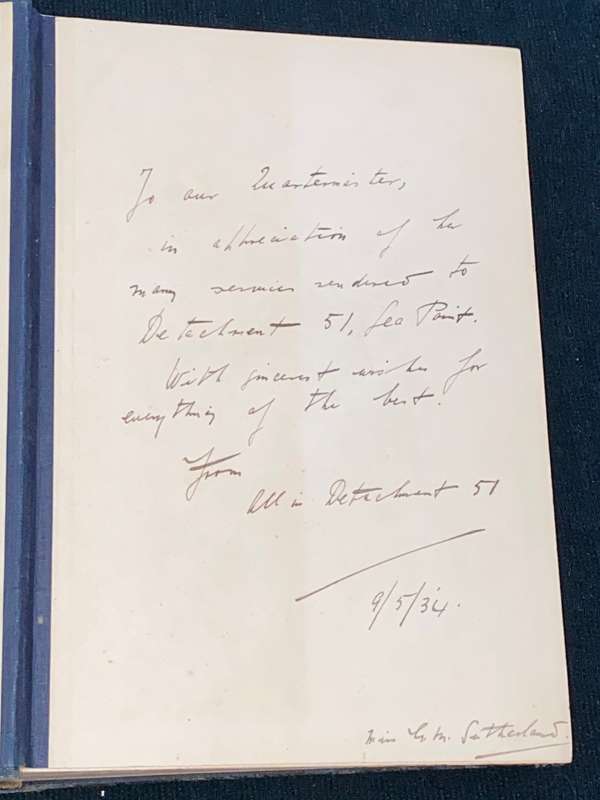 To our Quartermaster,
in appreciation of her
many services rendered to
Detachment 51, Sea Point.
With sincerest wishes for
everything of the best.
From
All in Detachment 51
9/5/34.
Miss M. Sutherland.